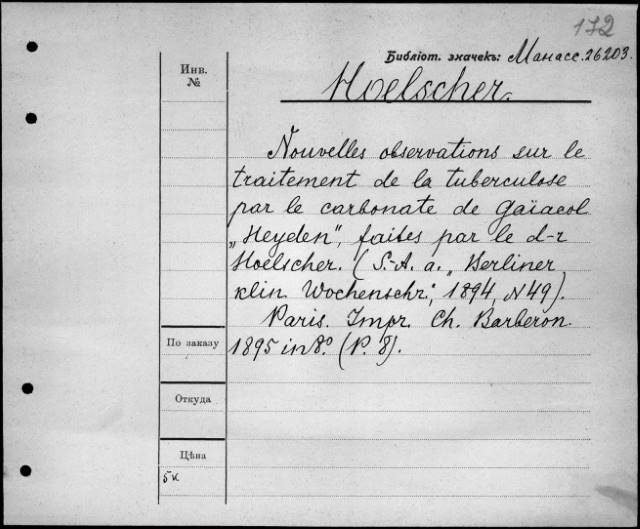 172
Библіот. значекъ: Манасс. 26203.
Инв.
№
Hoelscher.
Nouvelles observations sur le
traitement de la tuberculose
par le carbonate de gaïacol
„Heyden", faites par le d-r
Hoelscher. (S.-A. a. „Berliner
klin. Wochenschr.", 1894, N 49).
Paris. Impr. Ch. Barberon.
1895 in 8.° (P. 8).
По заказу
Откуда
Цѣна
5 к